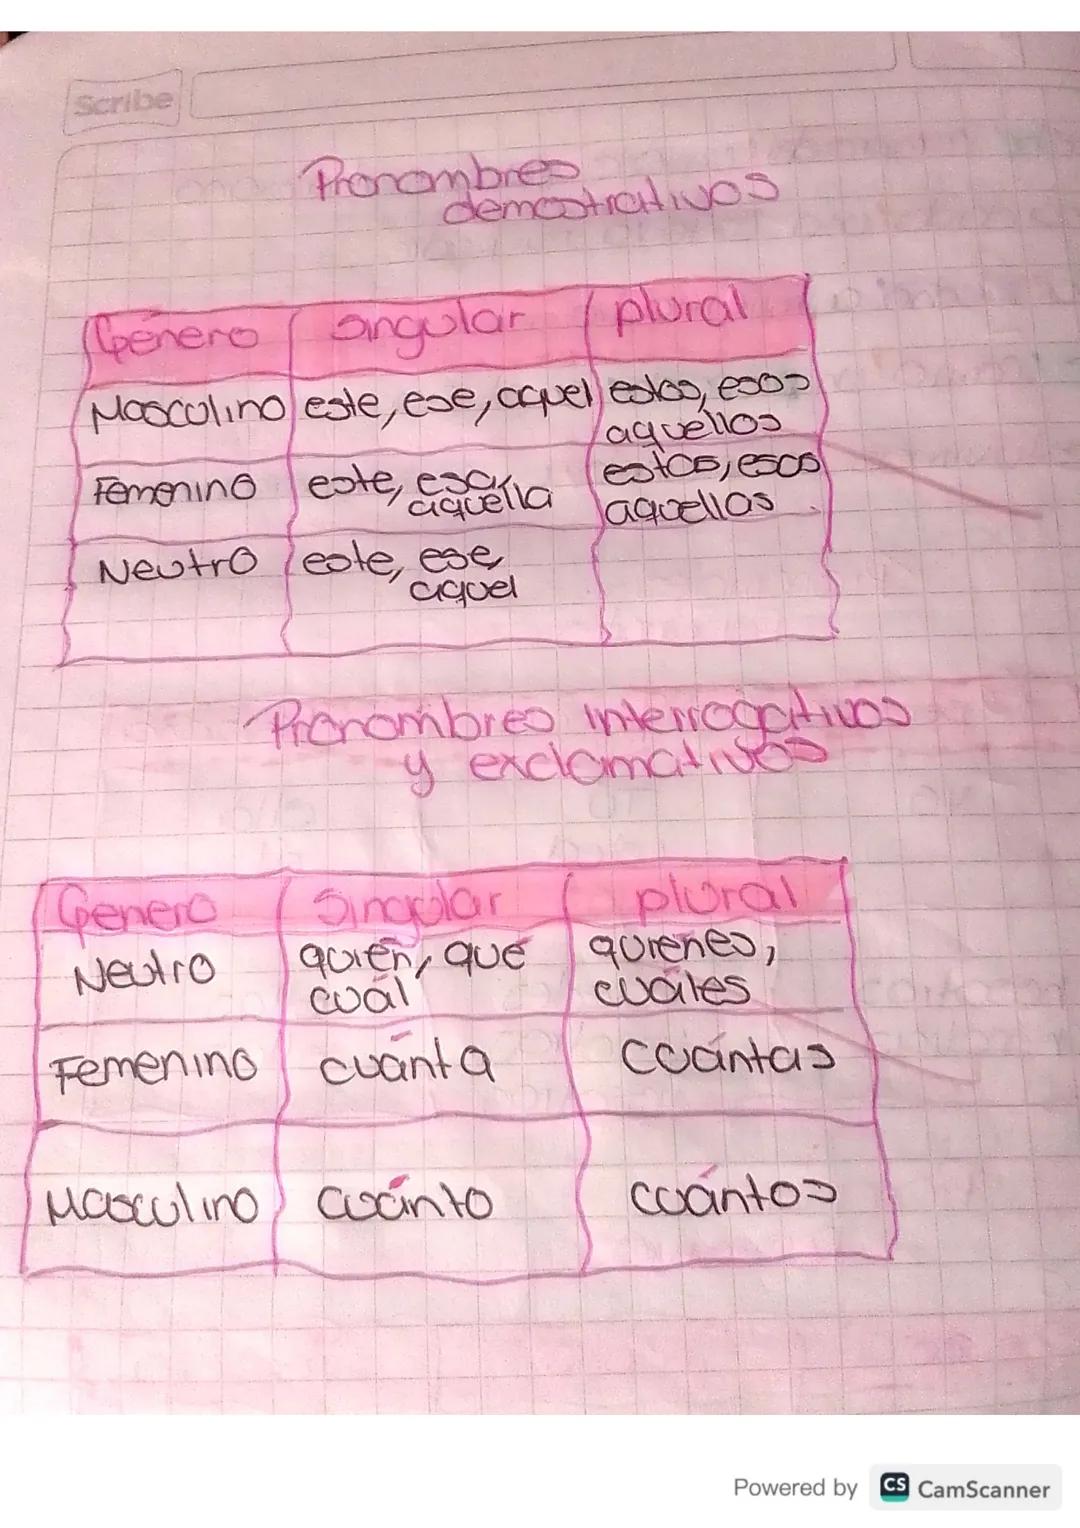 Scribe
Pronombres
demostrativos
Género singular plural
Masculino este, ese, aquel estos, esos
aquellos
Femenino este, esa, estas, esas
aquella aquellas
Neutro este, ese,
aquel
Pronombres interrogativos
y exclamativos
Genero Singular plural
Neutro quién, qué quiénes,
cuál cuáles
Femenino cuánta cuántas
Masculino cuánto cuántos
Powered by CS CamScanner